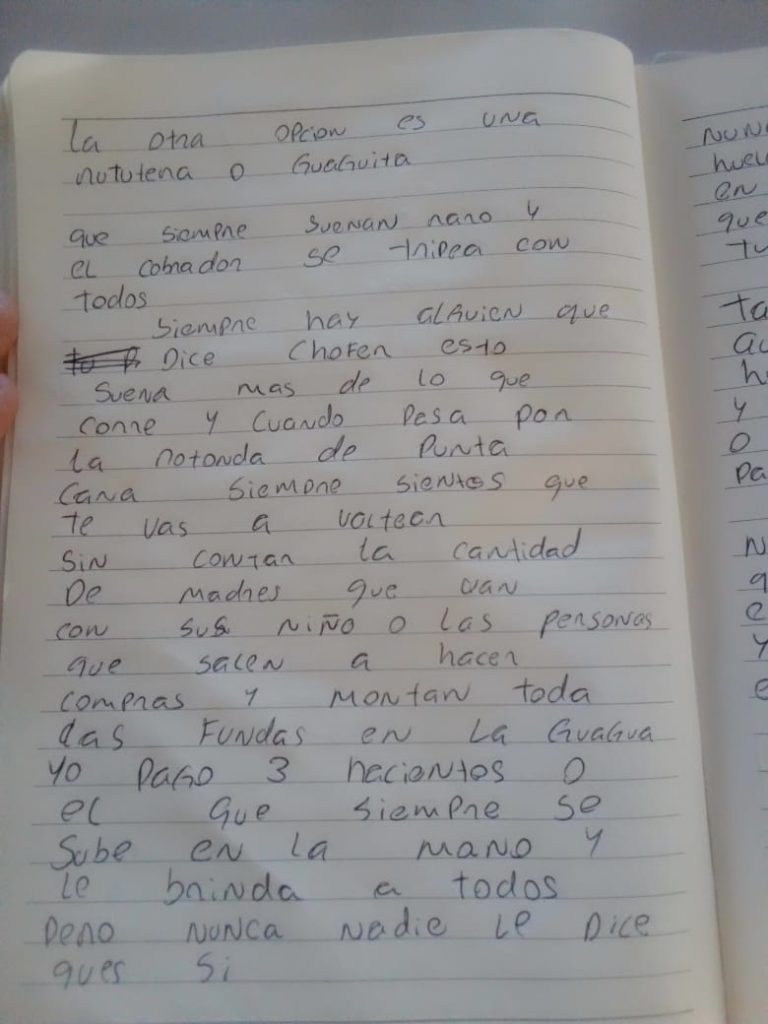 La otra opcion es una
rututera o Guaguita
que siempre suenan raro y
el cobrador se tripea con
todos
siempre hay alguien que
Dice Chofer esto
suena mas de lo que
corre y cuando pesa por
la rotonda de Punta
Cana siempre sientes que
te vas a voltear
sin contar la cantidad
De madres que van
con sus niño o las personas
que salen a hacer
compras y montan toda
las Fundas en la Guagua
yo pago 3 racientos o
el que siempre se
sube en la mano y
le brinda a todos
pero nunca nadie le Dice
ques si
en
que
y
o